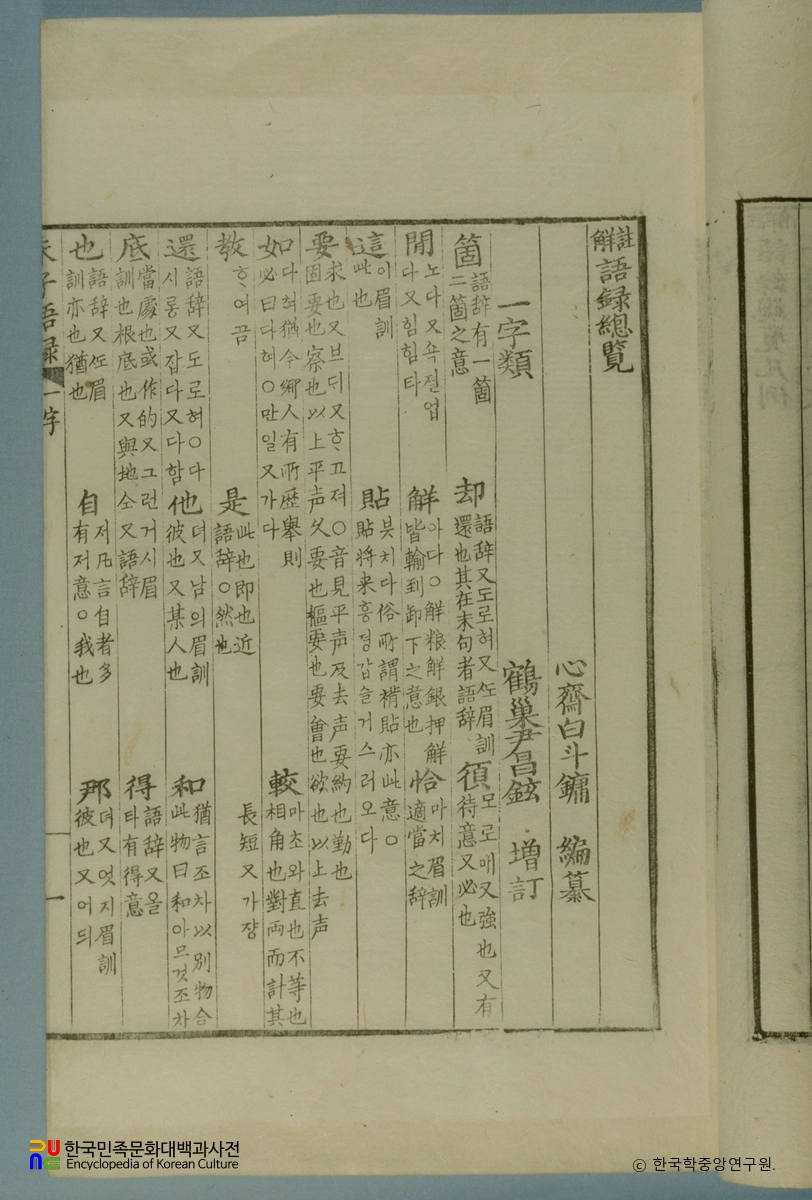 註解語錄總覽
心齋白斗鏞 編纂
鶴巢尹昌鉉 增訂
一字類
箇 語辞有一箇二箇之意
却 語辞又도로혀又仝眉訓還也其在末句者語辞
須 모로매又強也又有待意又必也
閒 노다又쇽졀업다又힘힘타
解 아다○解粮解銀押解皆輸到卸下之意也
恰 마치眉訓適當之辞
這 이眉訓此也
貼 븟치다俗所謂褙貼亦此意○貼将来흥졍갑슬거스러오다
要 求也又브ᄃᆡ又ᄒᆞ고져○音見平声及去声要約也勤也固要也察也以上平声久要也樞要也要會也欲也以上去声
如 다혀猶今鄉人有所歷舉則必曰다혀○만일又가다
較 마초와直也不等也相角也對両而計其長短又가쟝
教 ᄒᆞ여금
是 此也即也近語辞○然也
還 語辞又도로혀○다시롱又잡다又다함
他 뎌又남의眉訓彼也又某人也
和 猶言조차以別物合此物曰和아므것조차
底 當處也或作的又그런거시眉訓也根底也又與地仝又語辞
得 語辞又올타有得意
也 語辞又仝眉訓亦也猶也
自 저凡言自者多有저意○我也
那 뎌又엇지眉訓彼也又어듸
朱子語録 一字
一
한국민족문화대백과사전
Encyclopedia of Korean Culture
ⓒ 한국학중앙연구원.